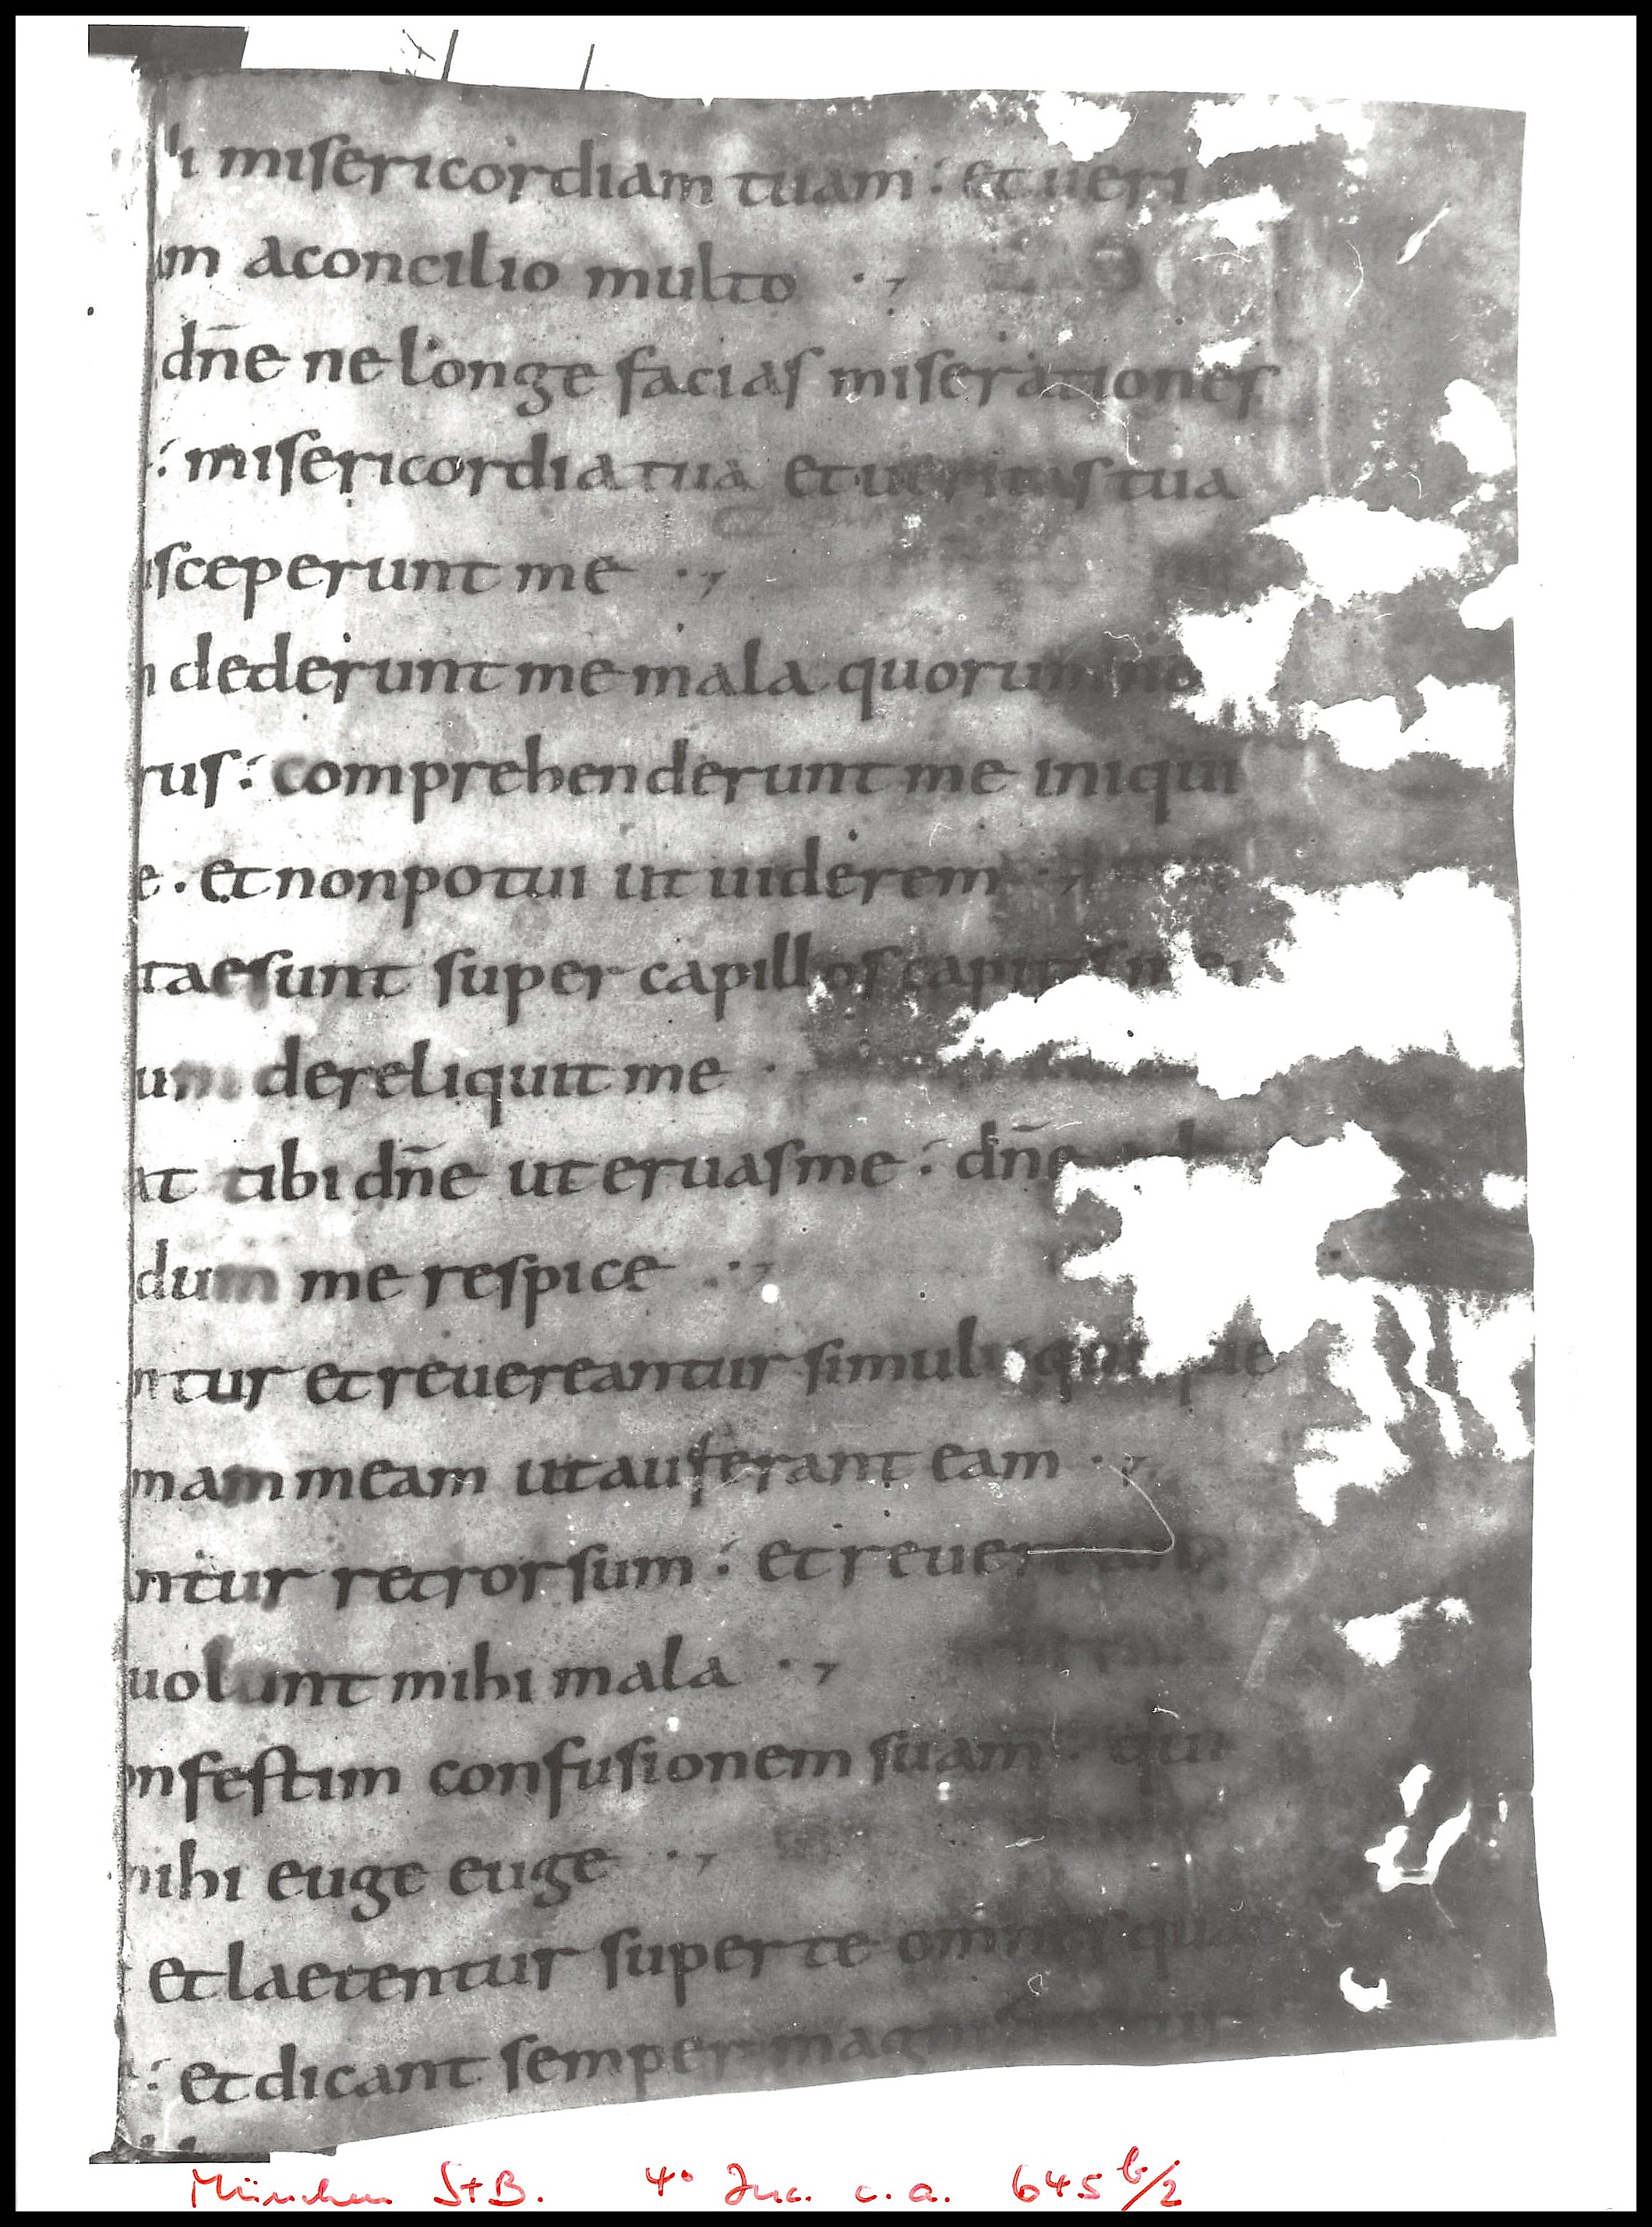 di misericordiam tuam : et ueri
am aconcilio multo .,
dn̄e ne longe facias miserationes
: misericordia tua et ueritas tua
sceperunt me .,
dederunt me mala quorum
rus : comprehenderunt me iniqui
e . et non potui ut uiderem .,
tae sunt super capillos capitis mei
um dereliquit me .
at tibi dn̄e ut eruas me : dn̄e
dum me respice .,
ntur et reuereantur simul qui
mam meam ut auferant eam .,
ntur retrorsum : et reuer
uolunt mihi mala .,
onfestim confusionem suam : qui
mihi euge euge .,
et laetentur super te omnes qua
: et dicant semper mag
München StB. 4° Inc. c. a. 645 b/2